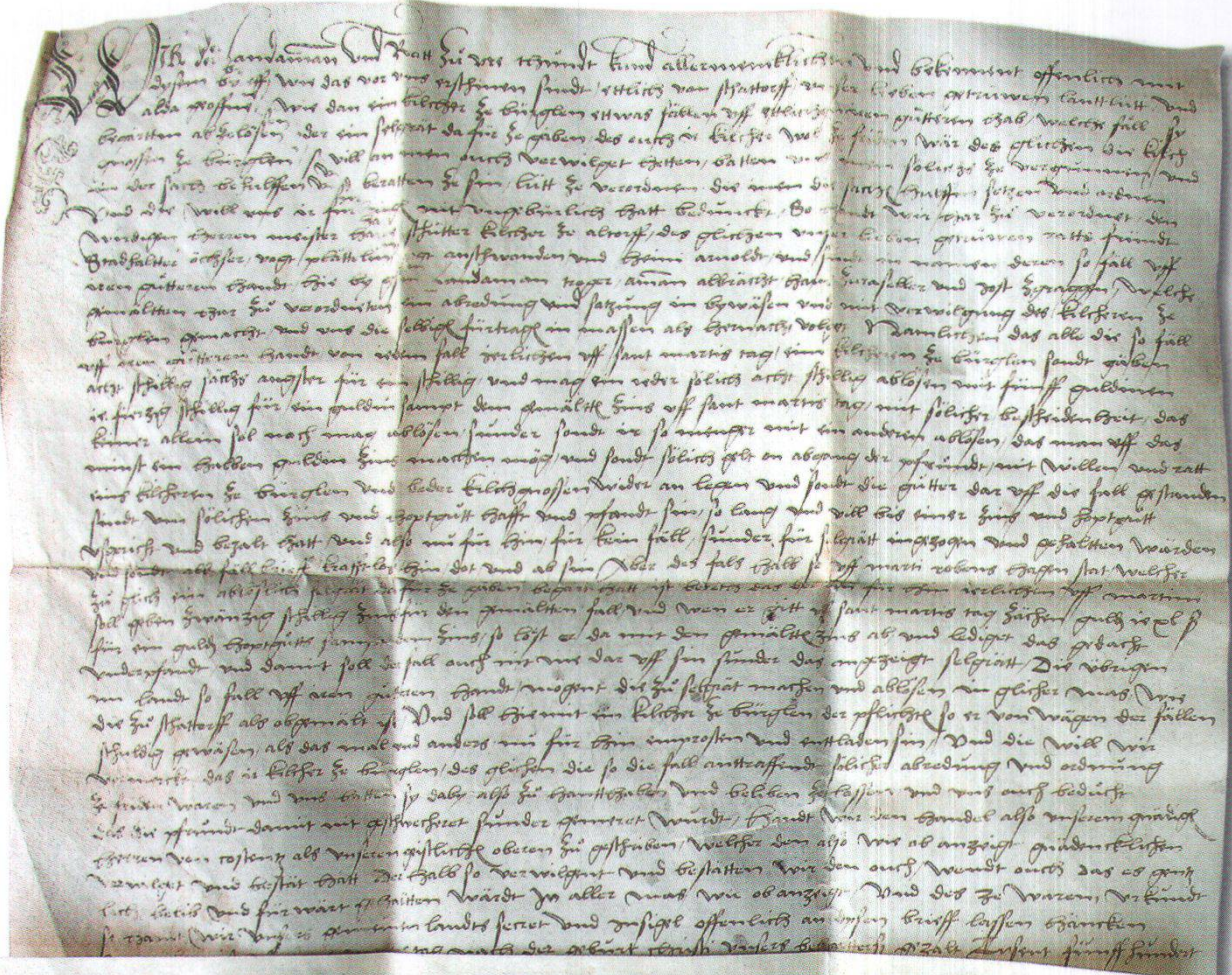 Wir der Landaman und Ratt zu Ure thundt kund allermenklichem und bekennent offenlich mit
disem brieff, wie das vor uns erschinen sindt, ettlich von schattorff, unser lieben getrüwen lantlütt und
alda geoffnet, wie dan ein kilcher ze bürglen ettwas fällen uff ettlichen iren gütteren hab, welche fäll sy
begärtten abzelösen, oder ein selgrät dafür ze gäben des ouch ir kilcher wol ze friden wär des glichen die kilch
gnossen ze bürglen, so vill an inen ouch verwilget hetten, batten uns inen soliches ze vergunnen, und
in der sach behulffen und beratten ze sin, lütt ze verordnen die inen die sachen hulffen setzen und ordnen
Und die, will uns ir für nit ungebürlich hatt bedunckt, So handt wir thar zu verordnet den
wirdigen herren meister hans schütter kilcher ze altorff, des glichen unser lieben getrüwen ratts fründt
Stadhaltter öchser, vogt plättelin, vogt anschwanden und heini arnoldt, und sindt in namen deren so fäll uff
iren gütteren handt, hie by gsin landaman troger, aman albrächt, hans zuraseller und jost zgraggen, welche
gemältten thar zu verordneten ein abredung und satzung in bywäsen und mit verwilgung des kilcheren ze
bürglen gemacht und uns die selbigen fürtragen in massen als hernach volget Namlichen das alle die so fäll
uff iren gütteren handt von iedem fall ierlichen uff sant martis tag, eim kilcheren ze bürglen sondt gäben
acht schillig sächs angster für ein schillig, und mag ein ieder solich acht schillig ablösen mit fünff guldinen
ie fierzig schillig für ein guldin sampt dem gemältten zins uff sant martis tag, mit solicher bescheidenheit, das
keiner allein sol noch mag ablösen, sunder sondt ir so menger mit ein anderen ablösen, das man uff das
minst ein halben gulden zins machen mög, und sondt solich gelt on abgang der pfruondt, mit willen und ratt
eins kilcheren ze bürglen und beder kilchgnossen wider an legen und sondt die gütter dar uff die fäll gestanden
sindt um solichen zins und hoptgutt hafft und pfandt sin, so lang und vill bis einer zins und hoptgutt
usgricht und bezalt hatt, und also nu für hin, für kein fall, sunder für selgrätt ingezogen und gehaltten wärden
und sondt alle fäll krafftlos hin dot und ab sin Aber des fals halb so uff marti robens hagen stat welcher
zu glich ein ablöslich selgrät dafür ze gäben begärt hatt ist beretth für ihn ierlichen uff martini
soll geben zwänzig schillig zins für den gemältten fall, und wen er gitt uff sant martis tag zächen guldin ie xl ß
für ein guldin hoptgutts sampt dem zins, so löst er da mit den gemältten zins ab und lediget das gedacht
underpfandt und damit soll der fall ouch nit me dar uff sin sunder das angezeigt selgrätt, Die übrigen
im landt so fäll uff iren gütteren handt, mögent die zu selgrät machen und ablösen in glicher mas, wie
die zu schattorff als obgemält ist Und soll hiemit ein kilcher ze bürglen der pflichten so er von wägen der fällen
schuldig gewäsen, als das mal und anders nu für hin embrosten und entladen sin, Und die will wir
vermerckt das ir kilcher ze bürglen, des glichen die so die fäll anttraffendt soliche abredung und ordnung
ze friden waren und uns battent sy daby also zu hantthaben und beliben ze lossen und uns ouch beducht
das die pfrundt damit nit geschwecheret sunder gemeret wurdt, handt wir den handel also unserem gnädigen
heeren von costentz als unseren geistlichen oberen zu geschriben, welcher den also wie ob anzeigt gnädencklichen
verwilget und bestät hatt Der halb so verwilgent und bestätten wir den ouch, wendt ouch das es gentz
lich belib und fürwärt ghaltten wärdt In aller mas wir ob anzeigt, Und des ze warem, urkundt
so handt wir unsers gemeinen landts secret und insigel offenlich an disen brieff lassen häncken
nach der geburt christi unsers gezalt Thusent fünffhundert